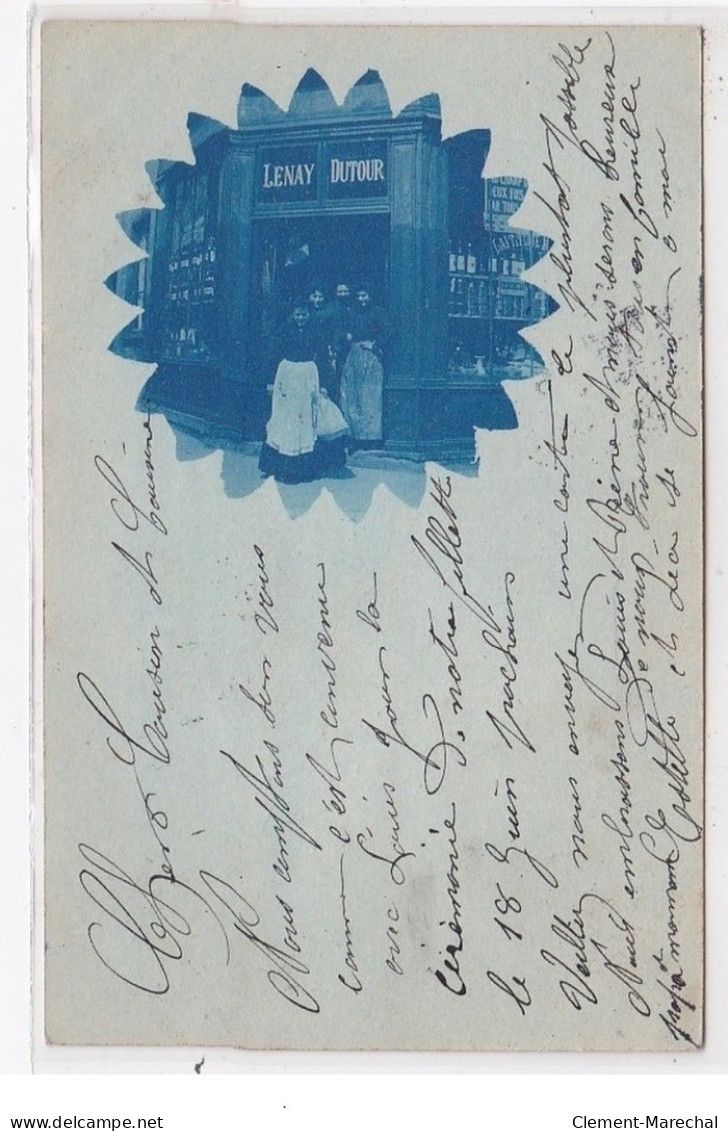 LENAY DUTOUR
Chers Cousin et Cousine
Nous comptons sur vous
comme c'est convenu
avec Louis pour la
cérémonie de notre fillette
le 18 Juin prochain
Veillez nous envoyer une carte le plustot possible
Nous embrassons Louis et Reine et nous serons heureux
de nous trouver tous en famille
papa maman et Léa se
Clement-Marechal